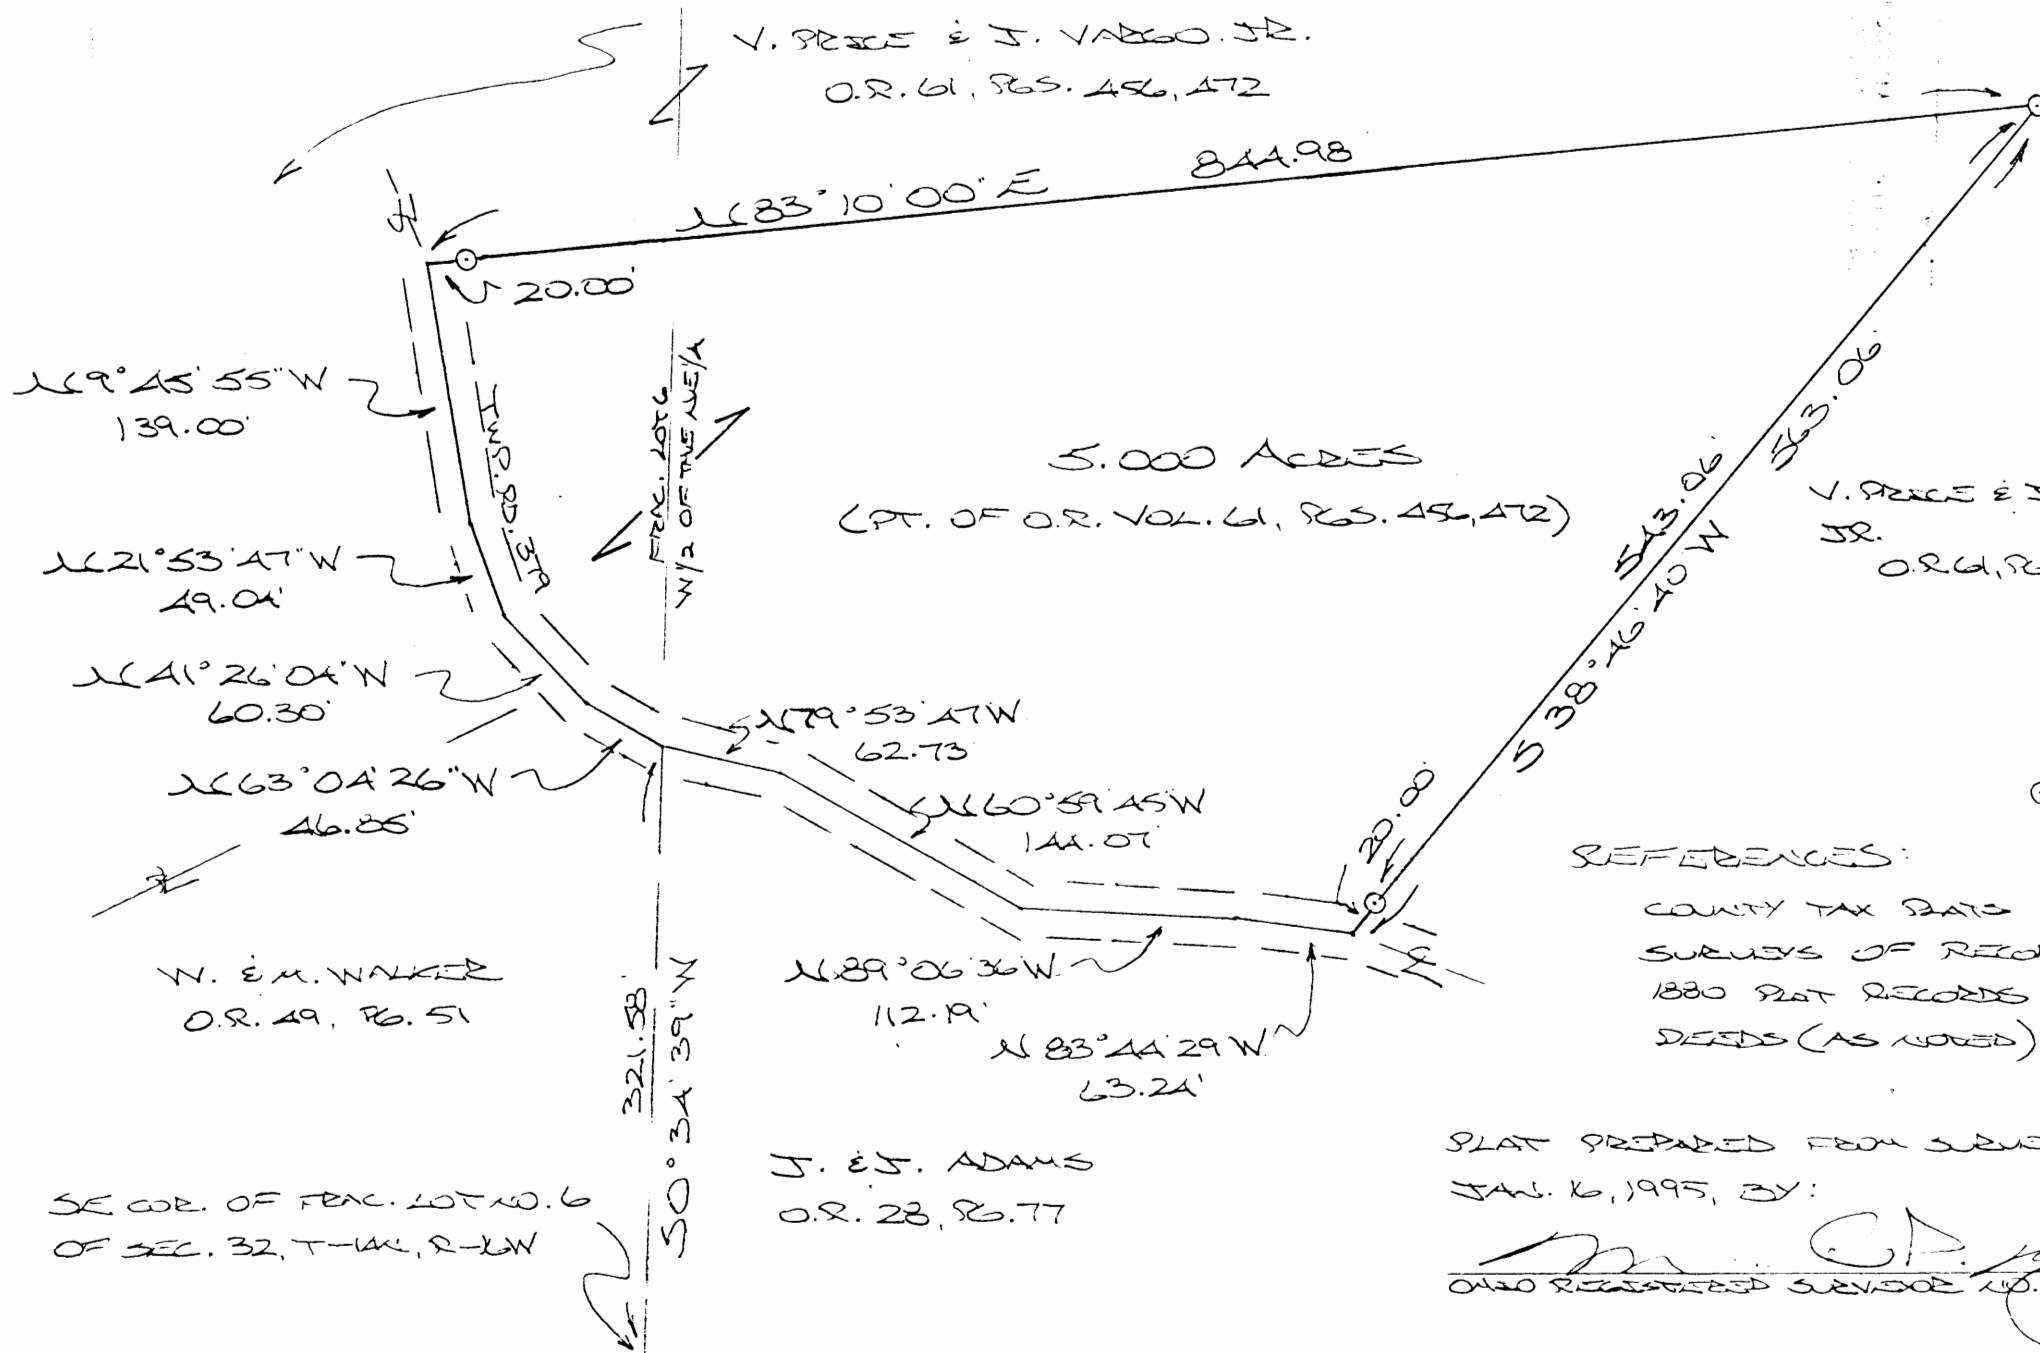 V. PRICE & J. VARGO. JR.
O.R. 61, PGS. 456, 472
844.98
N 83° 10' 00" E
20.00'
N 9° 45' 55" W
139.00'
TWP. RD. 379
FRAC. LOT 6
W/2 OF THE NE/4
5.000 ACRES
(PT. OF O.R. VOL. 61, PGS. 456, 472)
563.06
543.06'
S 38° 46' 40" W
V. PRICE & J
JR.
O.R. 61, PG
N 21° 53' 47" W
49.04'
N 41° 26' 04" W
60.30'
N 79° 53' 47" W
62.73
N 63° 04' 26" W
46.85'
N 60° 59' 45" W
144.07'
20.00
REFERENCES:
COUNTY TAX PLATS
SURVEYS OF RECO
1880 PLAT RECORDS
DEEDS (AS NOTED)
W. & M. WALKER
O.R. 49, PG. 51
321.58'
S 0° 34' 39" W
N 89° 06' 36" W
112.19'
N 83° 44' 29 W
63.24'
J. & J. ADAMS
O.R. 28, PG. 77
SE COR. OF FRAC. LOT NO. 6
OF SEC. 32, T-14N, R-16W
PLAT PREPARED FROM SURVE
JAN. 16, 1995, BY:
OHIO REGISTERED SURVEYOR NO.